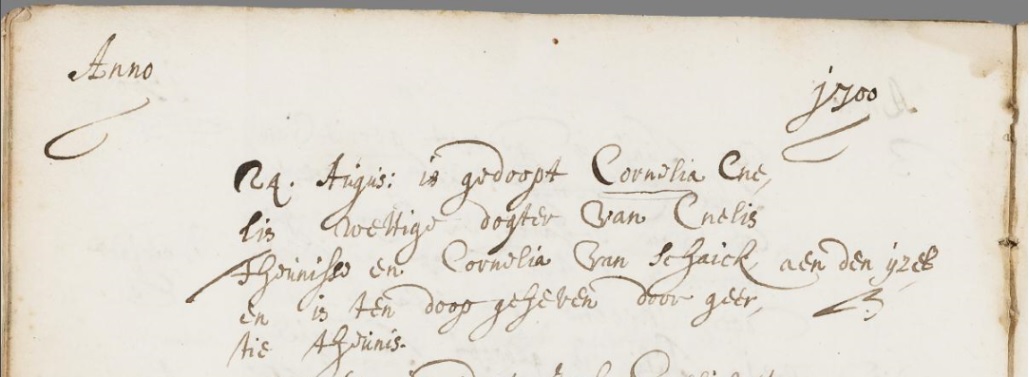 Anno 1700
24. Augus: is gedoopt Cornelia Cne,
lis wettige dogter van Cnelis
Theunisse en Cornelia van Schaick aen den ijzel
en is ten doop geheven door geer,
tie Theunis.